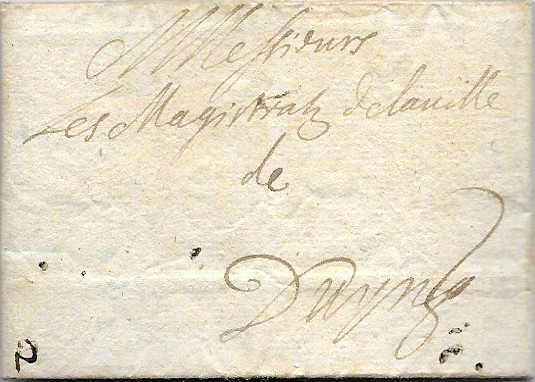 Messieurs
Les Magistratz delauille
de
2